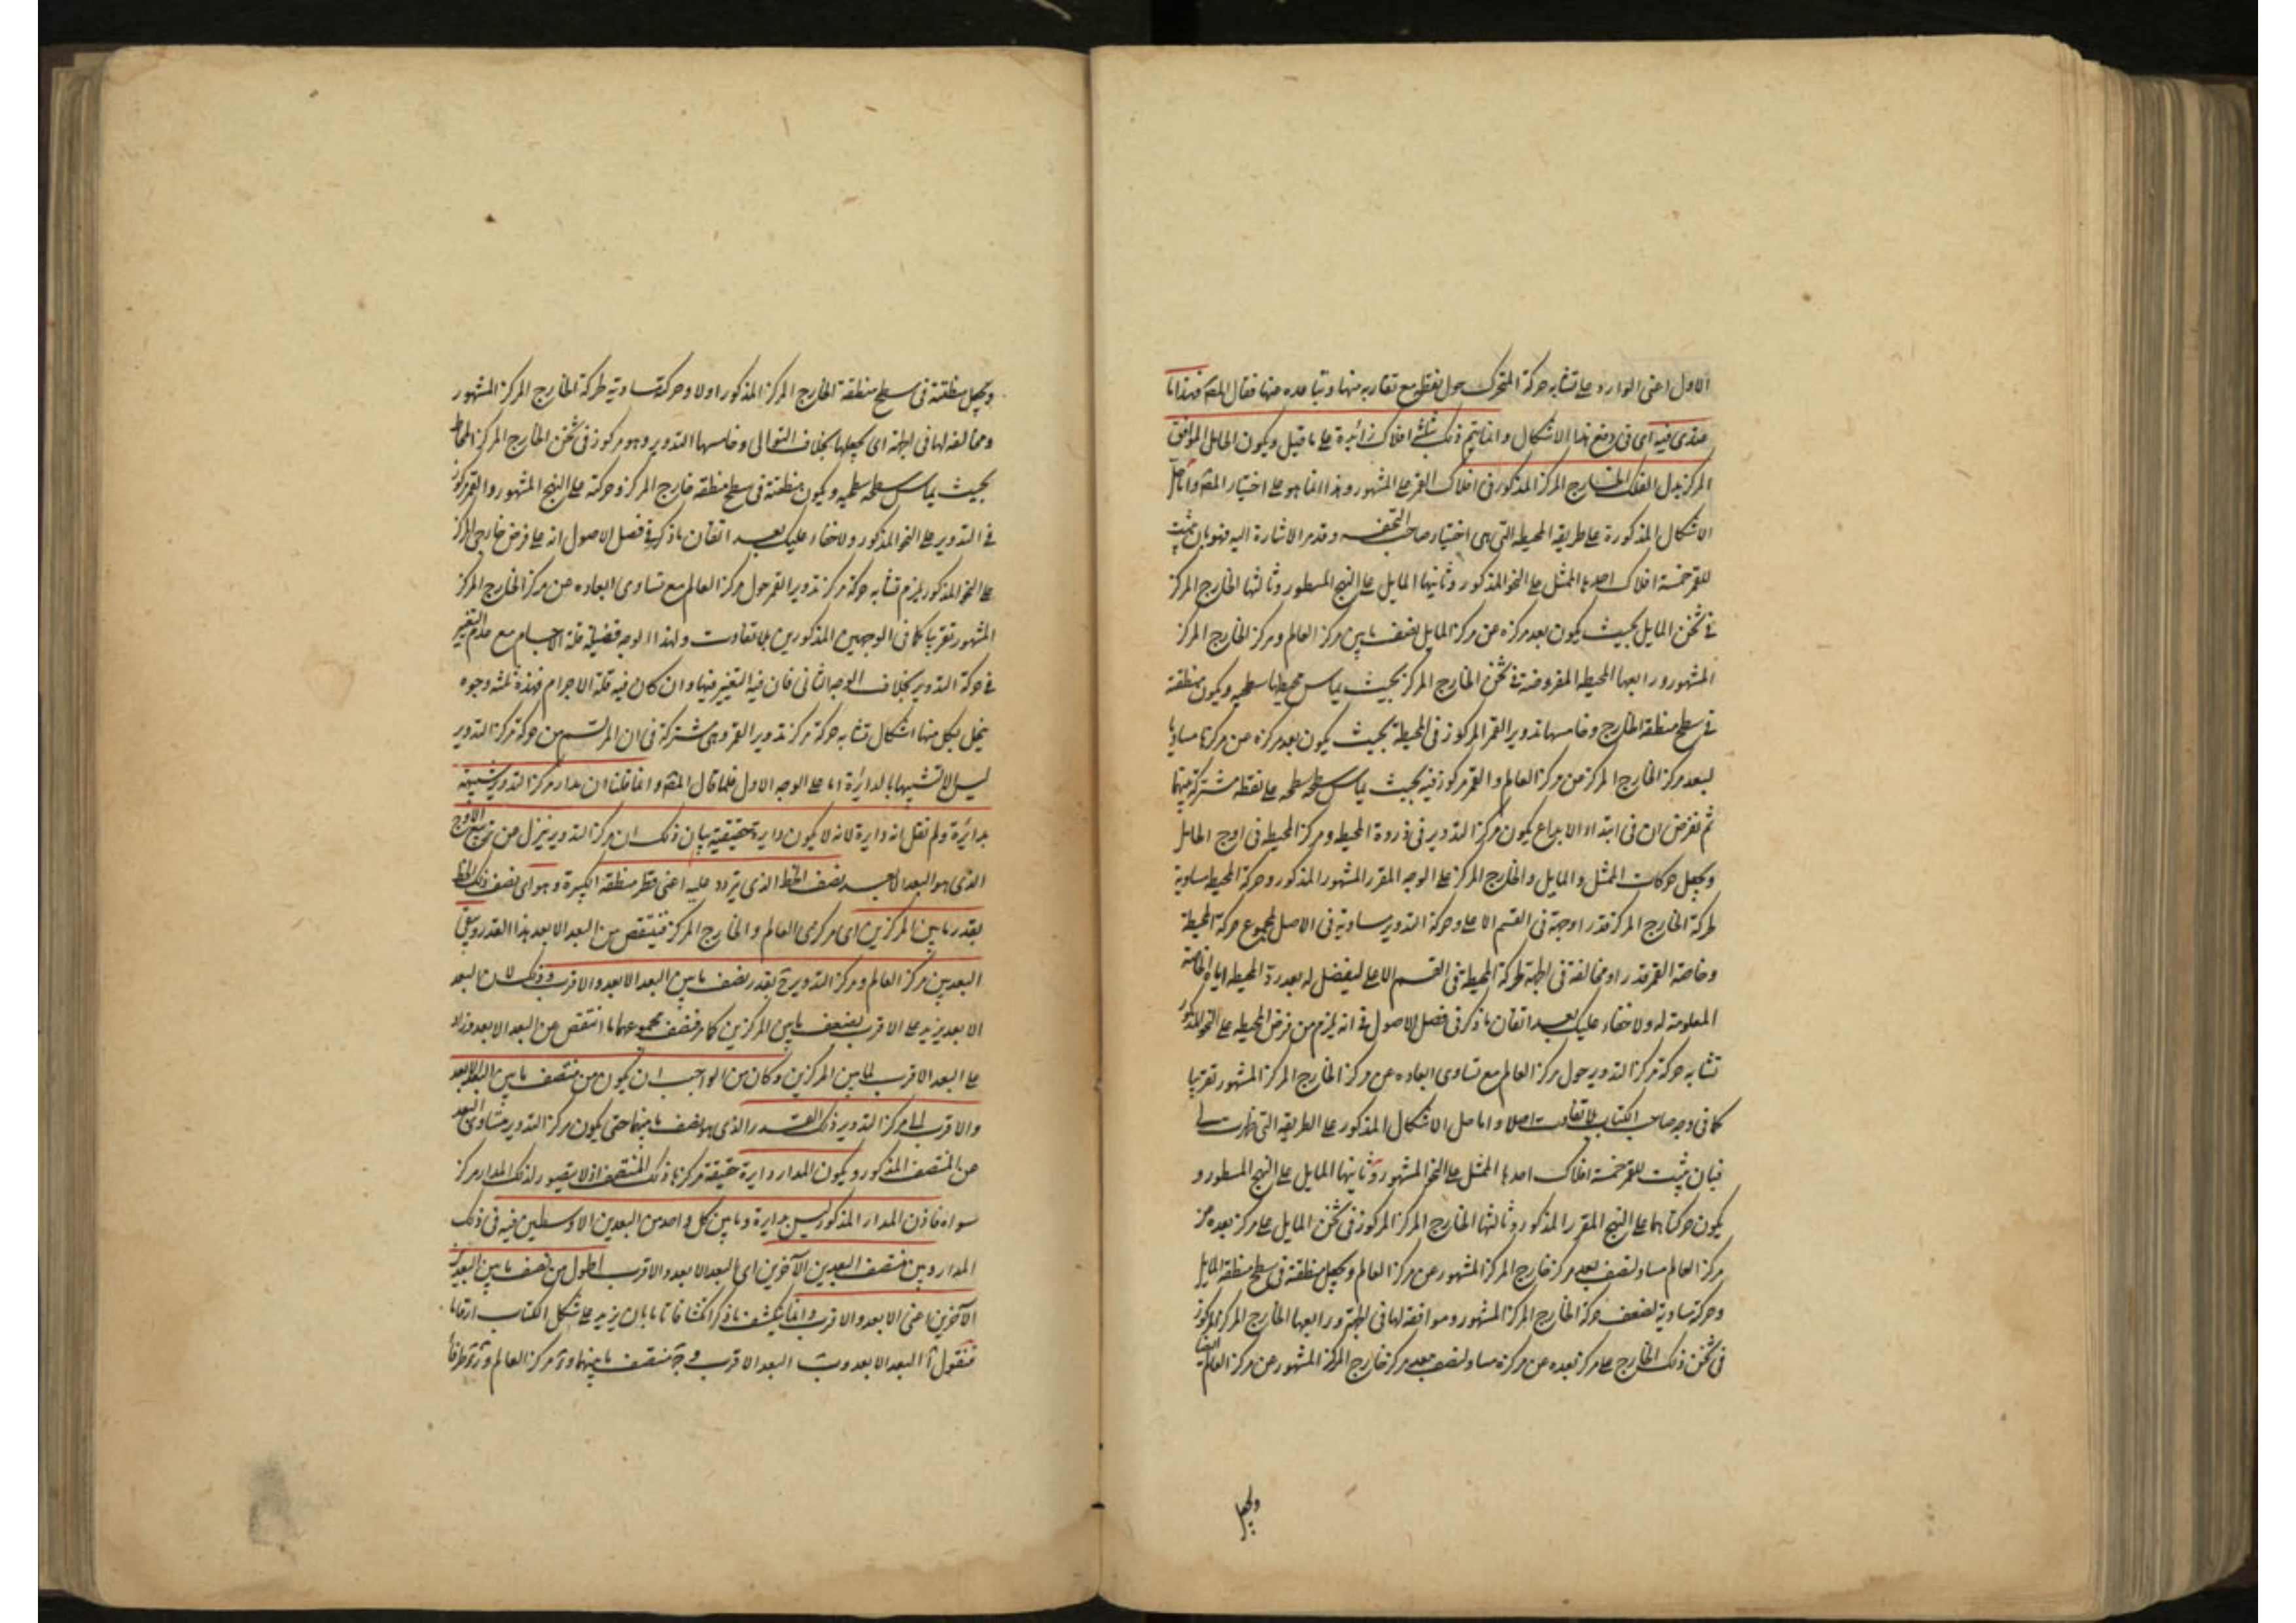 الاول اعنى الوارد على تشابه حركة المتحرك حول نقطة مع تقاربه منها وتباعده عنها فقال المصـ فهذا ما
عندى فيه اى فى دفع هذا الاشكال وانما يتم ذلك بثلثة افلاك زائدة على ما قيل ويكون الحامل الموافق
المركز بدل الفلك الخارج المركز المذكور فى افلاك القمر على المشهور وهذا انما هو على اختيار المصـ واما حل
الاشكال المذكورة على طريقة المحيطة التى هى اختيار صاحب التحفـه وقد مر الاشارة اليه فهو بان يثبت
للقمر خمسة افلاك احدها الممثل على النحو المذكور وثانيها المايل على النهج المسطور وثالثها الخارج المركز
فى ثخن المايل بحيث يكون بعد مركزه عن مركز المايل نصف ما بين مركز العالم ومركز الخارج المركز
المشهور ورابعها المحيطة المفروضة فى ثخن الخارج المركز بحيث يماس محيطها سطحيه ويكون منطقته
فى سطح منطقة الخارج وخامسها تدوير القمر المركوز فى المحيطة بحيث يكون بعد مركزه عن مركزها مساويا
لبعد مركز الخارج المركز من مركز العالم والقمر مركوز فيه بحيث يماس سطحه سطحه على نقطة مشتركة بينهما
ثم نفرض ان فى ابتداء الابداع يكون مركز التدوير فى ذروة المحيط ومركز المحيط فى اوج الحامل
ويجعل حركات الممثل والمايل والخارج المركز على الوجه المقرر المشهور المذكور وحركة المحيط مساوية
لحركة الخارج المركز قدرا وجهة فى القسم الاعلى وحركة التدوير مساوية فى الاصل لمجموع حركة المحيطة
وخاصة القمر قدرا ومخالفة فى الجهة لحركة المحيطة فى القسم الاعلى ليفضل له بعد ردة المحيطة اياه الخاصة
المعلومة له ولا خفاء عليك بعد اتقان ما ذكر فى فصل الاصول فى انه يلزم من فرض المحيطة على النحو المذكور
تشابه حركة مركز التدوير حول مركز العالم مع تساوى ابعاده عن مركز الخارج المركز المشهور تقريبا
كما فى وجه صاحب الكتاب بلا تفاوت اصلا واما حل الاشكال المذكور على الطريقة التى ظهرت لى
فبان يثبت للقمر خمسة افلاك احدها الممثل على النحو المشهور وثانيها المايل على النهج المسطور و
يكون حركتاهما على النهج المقرر المذكور وثالثها الخارج المركز المركوز فى ثخن المايل على مركز بعده عن
مركز العالم مساو لنصف بعد مركز خارج المركز المشهور عن مركز العالم ويجعل منطقته فى سطح منطقة المايل
وحركته مساوية لضعف حركة الخارج المركز المشهور وموافقة لها فى الجهة ورابعها الخارج المركز المركوز
فى ثخن ذلك الخارج على مركز بعده عن مركزه مساو لنصف بعد مركز خارج المركز المشهور عن مركز العالم ايضا
ويجعل
ويجعل منطقته فى سطح منطقة الخارج المركز المذكور اولا وحركته مساوية لحركة الخارج المركز المشهور
ومخالفة لها فى الجهة اى يجعلها بخلاف التوالى وخامسها التدوير وهو مركوز فى ثخن الخارج المركز المحاط
بحيث يماس سطحه سطحيه ويكون منطقته فى سطح منطقة خارج المركز وحركته على النهج المشهور والقمر مركوز
فى التدوير على النحو المذكور ولا خفاء عليك بعد اتقان ما ذكر فى فصل الاصول انه على فرض خارجى المركز
على النحو المذكور يلزم تشابه حركة مركز تدوير القمر حول مركز العالم مع تساوى ابعاده عن مركز الخارج المركز
المشهور تقريبا كما فى الوجهين المذكورين بلا تفاوت ولهذا الوجه فضيلة قلة الاجسام مع عدم التغيير
فى حركة التدوير بخلاف الوجه الثانى فان فيه التغيير فيها وان كان فيه قلة الاجرام فهذه ثلثة وجوه
ينحل بكل منها اشكال تشابه حركة مركز تدوير القمر وهى مشتركة فى ان المرتسم من حركة مركز التدوير
ليس الا شبيها بالدائرة اما على الوجه الاول فلما قال المصـ وانما قلنا ان مدار مركز التدوير شبيهة
بدائرة ولم نقل انه دايرة لانه لا يكون دايرة حقيقية بيان ذلك ان مركز التدوير ينزل عن الاوج
الذى هو البعد الابعد نصف الخط الذى يتردد عليه اعنى قطر منطقة الكبيرة وهو اى نصف ذلك الخط
بقدر ما بين المركزين اى مركزى العالم والخارج المركز فينتقص من البعد الابعد هذا القدر
البعد بين مركز العالم ومركز التدوير بقدر نصف ما بين البعد الابعد والاقرب وذلك لان البعد
الابعد يزيد على الاقرب بضعف ما بين المركزين كما مر فنصف مجموعهما ما انتقص من البعد الابعد وزاد
على البعد الاقرب لما بين المركزين وكان من الواجب ان يكون من منتصف ما بين البعد الابعد
والاقرب الى مركز التدوير ذلك القدر الذى هو نصف ما بينهما حتى يكون مركز التدوير متساوى البعد
عن المنتصف المذكور ويكون المدار دايرة حقيقة مركزها ذلك المنتصف اذ لا يتصور لذلك المدار مركز
سواه فاذن المدار المذكور ليس بدايرة وما بين كل واحد من البعدين الاوسطين فيه فى ذلك
المدار وبين منتصف البعدين الآخرين اى البعد الابعد والاقرب اطول من نصف ما بين البعدين
الآخرين اعنى الابعد والاقرب وانما ينكشف ما ذكر انكشافا تاما بان يزيد على شكل الكتاب ارقاما
فنقول آ البعد الابعد وب البعد الاقرب وج منتصف ما بينهما ود مركز العالم